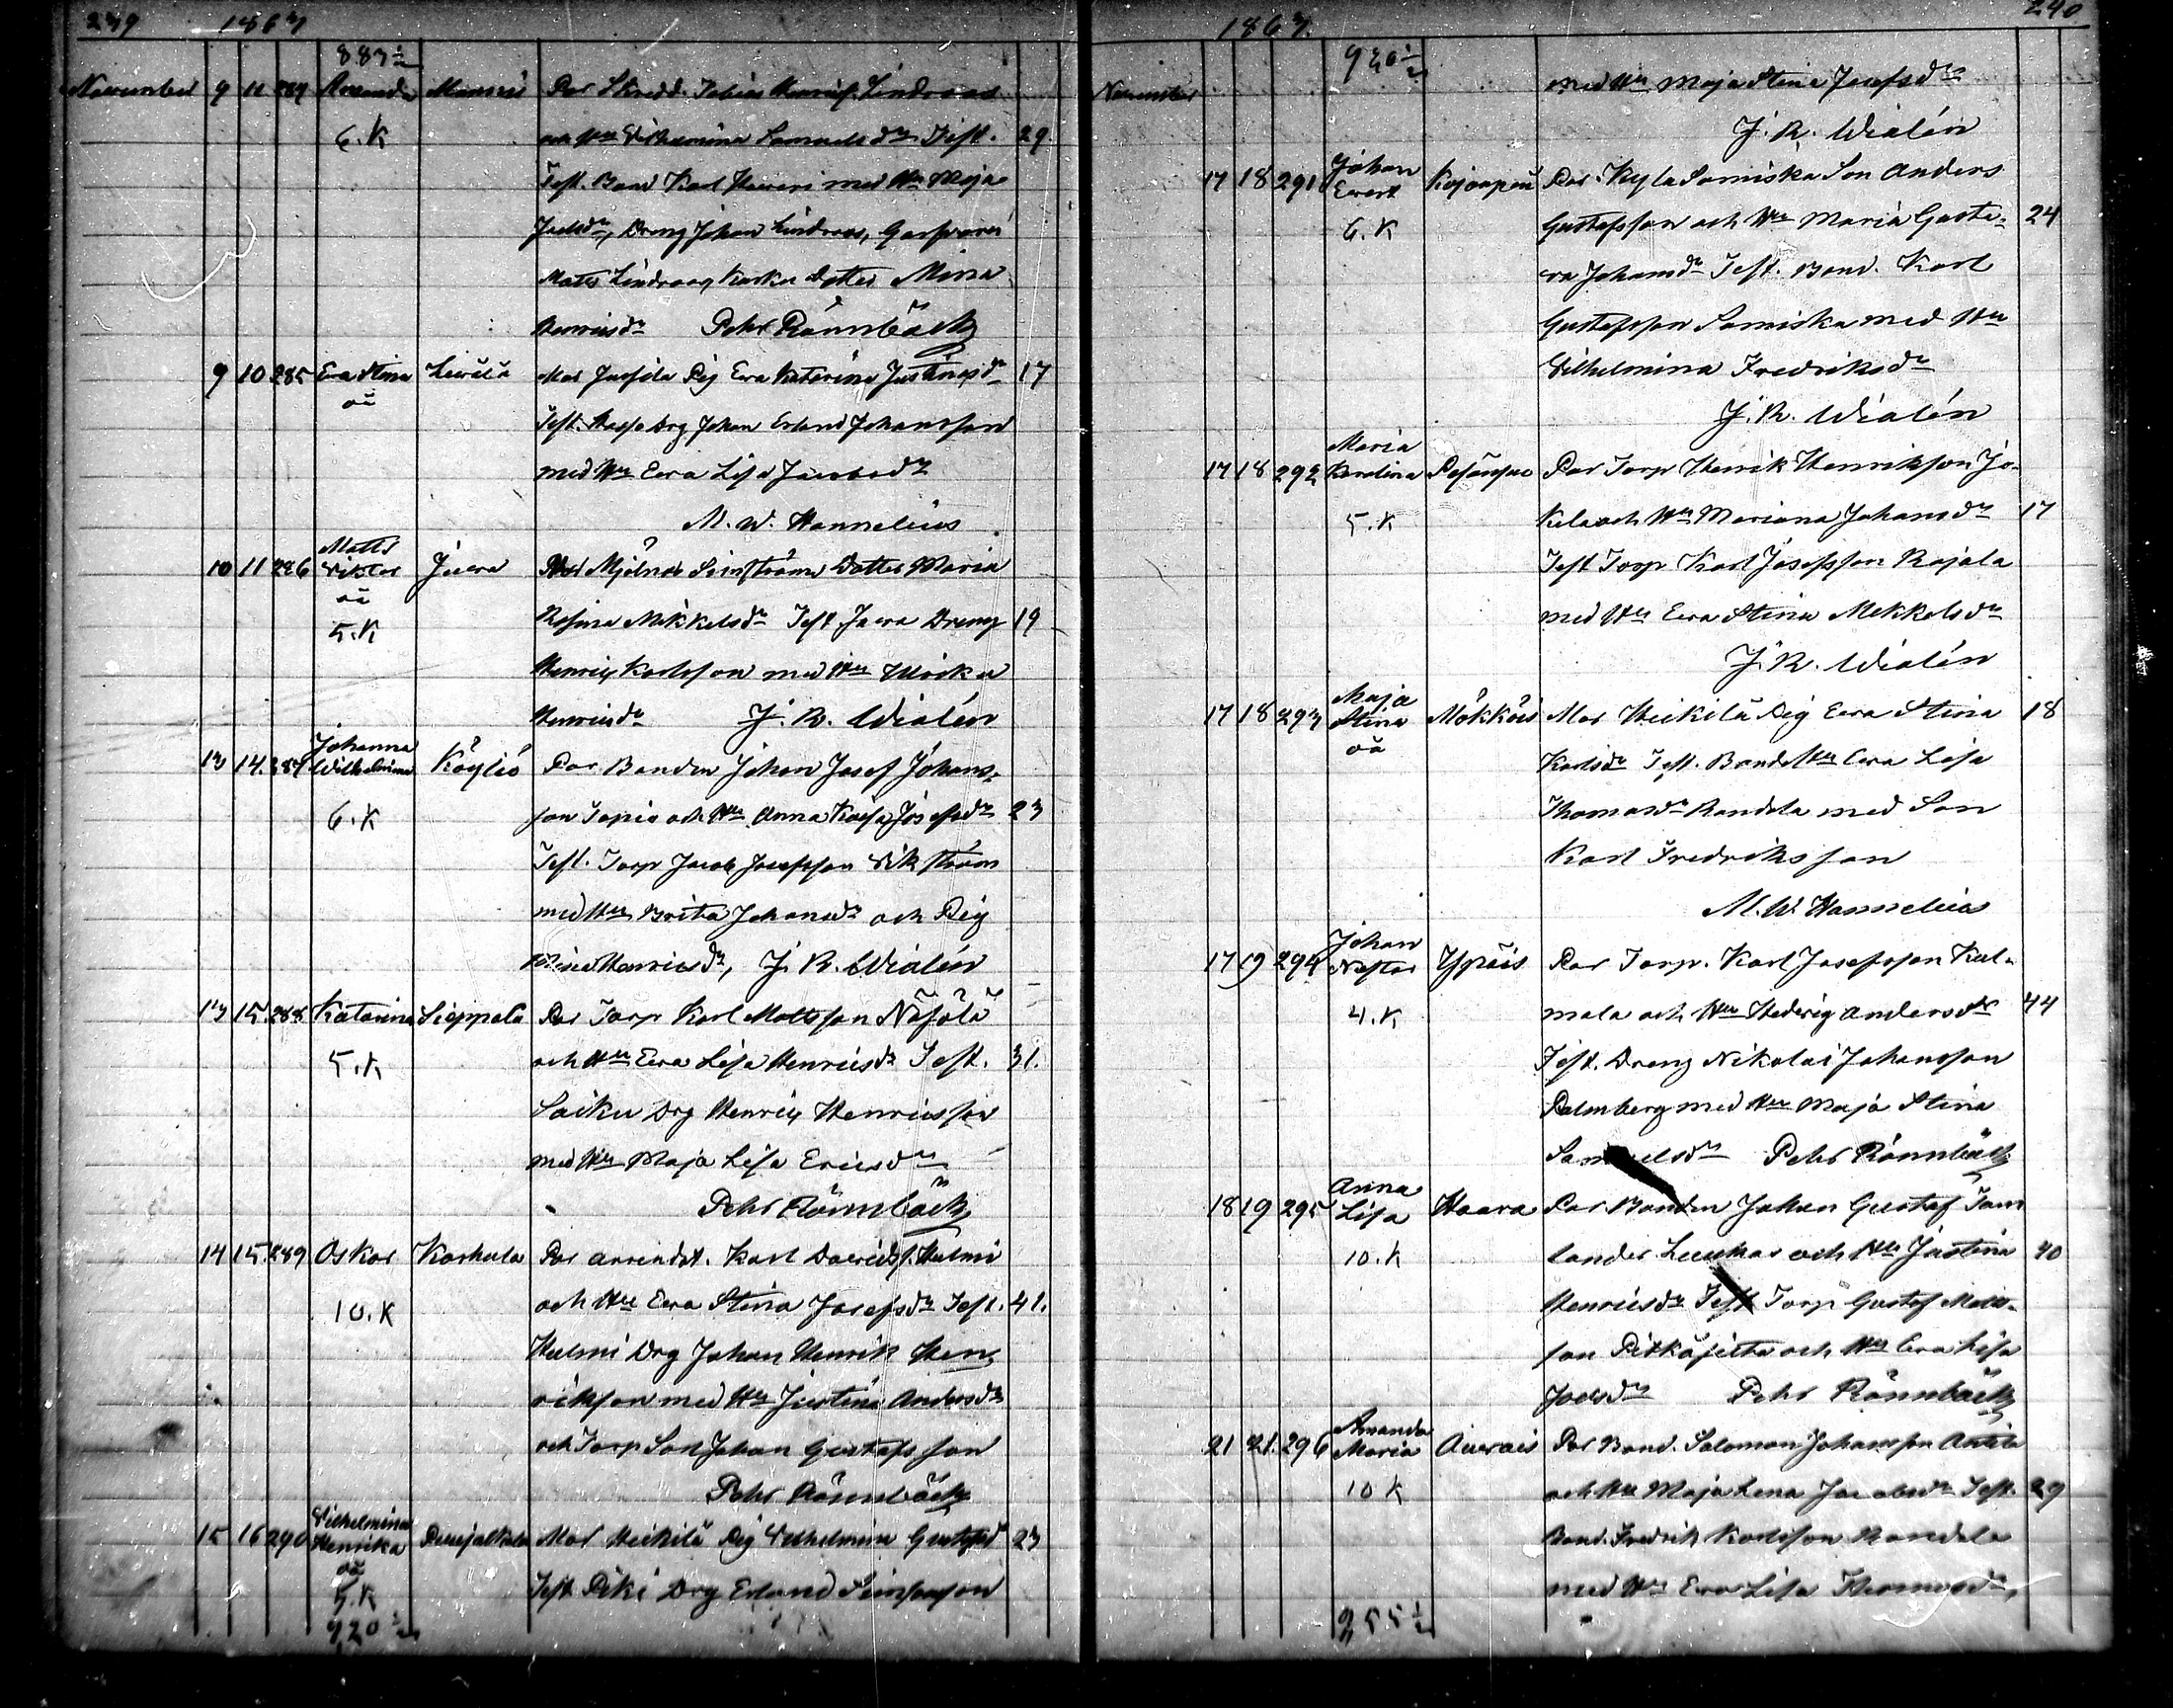 239 1867
883 1/2
November 9 11 284 Amanda Mansis Par Skredd. Tobias Henrics. Lindroos
6. K och Hu Vilhelmina Samuelsdr Test. 29.
Test. Bond Karl Heurari med Hu Maja
Joelsdr, Dreng Johan Lindroos, Garfvari
Matts Lindroos Dotter Mina
Henricsdr Pehr Rönnbäck
9 10 285 Eva Stina Livilä Mor Jussila Pig Eva Katarina Justinasdr 17
oä
Test. Drg Johan Erland Johansson
med Hu Eva Lisa Jacobsdr
M. W. Hannelius
10 11 286 Matts Viktor Juva Mor Mjölnar Dotter Maria
oä
5. K Rosina Mikkelsdr Test. Juva Dreng 19
Henric Karlsson med Hu Ulrika
Henricsdr J. R. Wialén
13 14. 287 Johanna Wilhelmina Köyliö Par Bonden Johan Josef Johans-
6. K son Tapio och Hu Anna Kaisa Josefsdr 23
Test. Torp Jacob Josefsson Vikström
med Hu Brita Johansdr och Pig
Henricsdr, J. R. Wialén
13 15. 288 Katarina Sieppala Par Torp Karl Mattsson
5. K och Hu Eva Lisa Henricsdr Test. 31.
Saiku Drg Henric Henricsson
med Hu Maja Lisa Ericsdr
Pehr Rönnbäck
14 15. 289 Oskar Karhula Par arrendat. Karl Davidss. Hulmi
10. K och Hu Eva Stina Josefsdr Test. 41.
Hulmi Drg Johan Henrik Hen-
rikson med Hu Justina Andersdr
och Torp Son Johan Gustafsson
Pehr Rönnbäck
15 16 290 Vilhelmina Henrika Mor Heikilä Pig Vilhelmina Gustafsdr 23
oä
5. K Test. Piki Drg Erland Simonsson
920 1/2
1867. 240
920 1/2
November med Hu Maja Stina Josefsdr
J. R. Wialén
17 18 291 Johan Evert Kojonperä Par. Kyla Samiska Son Anders
6. K Gustafsson och Hu Maria Gusta- 24
va Johansdr Test. Bond. Karl
Gustafsson Samiska med Hu
Vilhelmina Fredriksdr
J. R. Wialén
17 18 292 Maria Karolina Pesänsuo Par Torp Henrik Henrikson Jo-
5. K kela och Hu Mariana Johansdr 17
Test Torp Karl Josefsson Rajala
med Hu Eva Stina Mikkelsdr
J. R. Wialén
17 18 293 Maja Stina Mökköis Mor Heikilä Pig Eva Stina 18
oä Karlsdr Test. Bonde Hu Eva Lisa
Thomasdr Randela med Son
Karl Fredriksson
M. W. Hannelius
17 19 294 Johan Nestor Ypäis Par Torp. Karl Josefsson Kal-
4. K mala och Hu Hedvig Andersdr 44
Test. Dreng Nikolai Johansson
Palmberg med Hu Maja Stina
Samuelsdr Pehr Rönnbäck
18 19 295 Anna Lisa Haara Par Bonden Johan Gustaf Tam
10. K lander Luukas och Hu Justina 40
Henricsdr Test Torp Gustaf Matts-
son Pitkäsilta och Hu Eva Lisa
Joelsdr Pehr Rönnbäck
21 21. 296 Amanda Maria Auvais Par Bond. Salomon Johansson Antila
10 K och Hu Maja Lena Jacobsdr Test. 29
Bond. Fredrik Karlsson Randela
med Hu Eva Lisa Thomasdr,
955 1/2